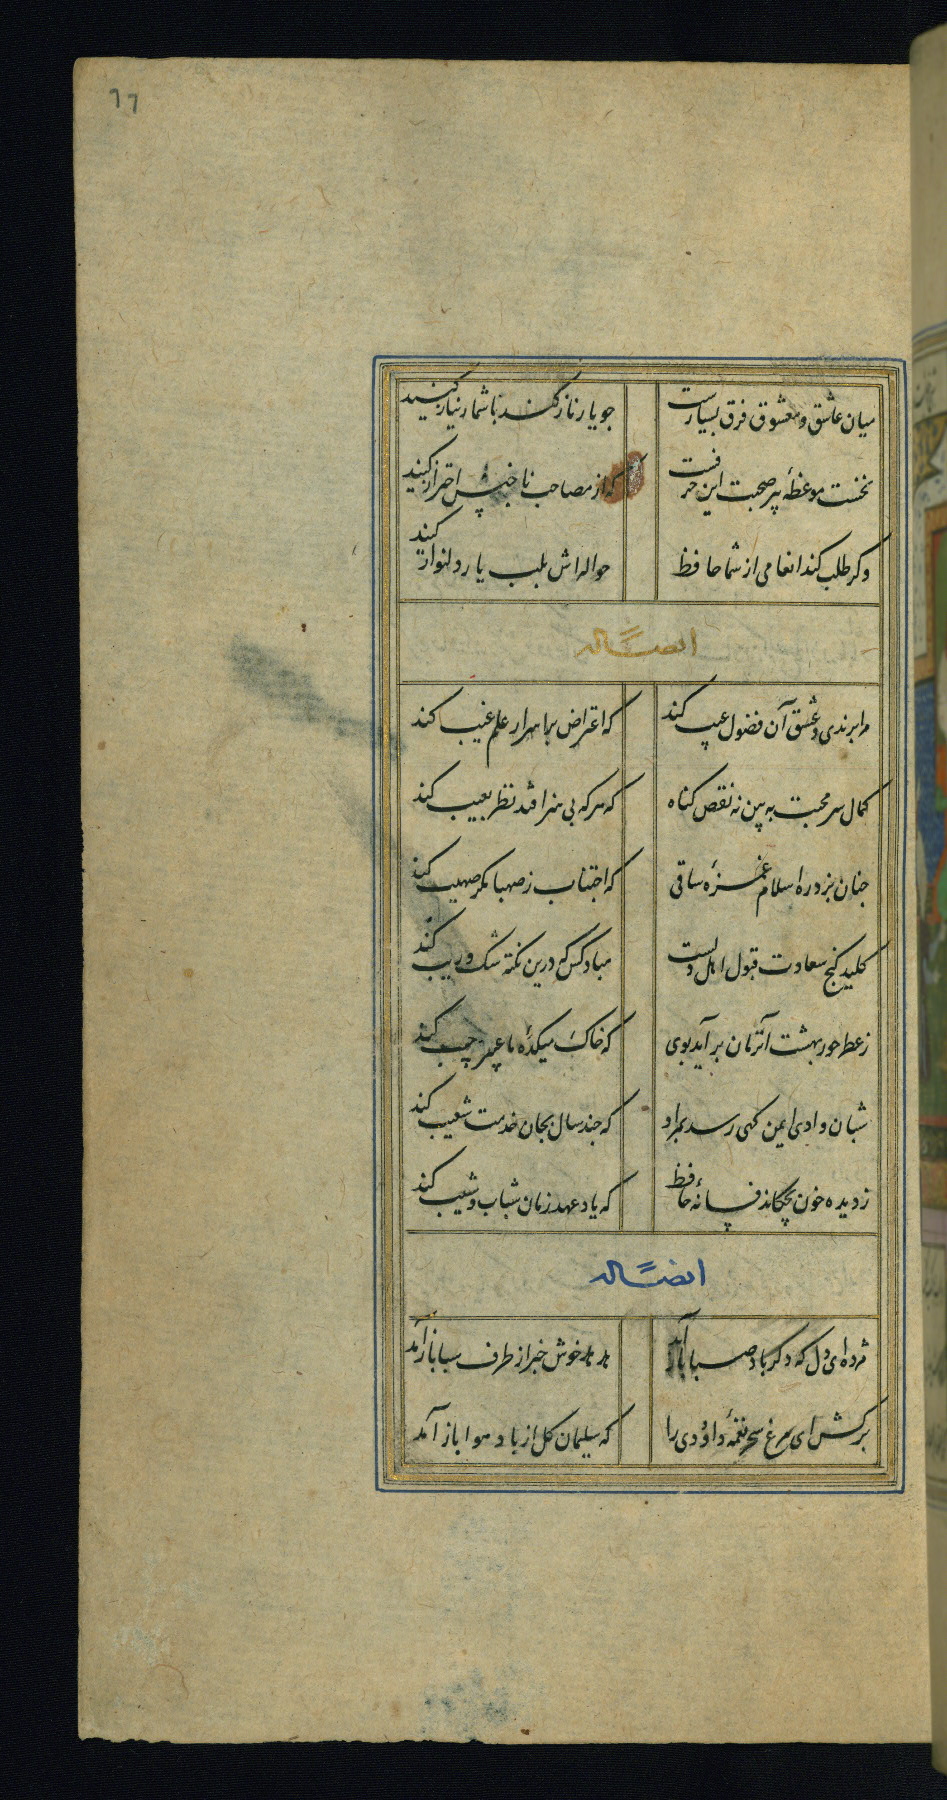 ٦٦
میان عاشق و معشوق فرق بسیارست جو یار ناز کند با شما نیاز کنید
نخست موعظهٔ پیر صحبت این حرفست که از مصاحب ناجنس احتراز کنید
وکر طلب کند انعامی از شما حافظ حوالهاش بلب یار دلنواز کنید
ایضاً له
مرا برندی و عشق آن فضول عیب کند که اعتراض بر اسرار علم غیب کند
کمال سر محبت به بین نه نقص کناه که هر که بی هنر افتد نظر بعیب کند
جنان بزد ره اسلام غمزهٔ ساقی که اجتناب ز صهبا مکر صهیب کند
کلید کنج سعادت قبول اهل دلست مباد کس که درین نکته شک و ریب کند
ز عطر حور بهشت آنزمان بر آید بوی که خاک میکدهٔ ما عبیر جیب کند
شبان وادی ایمن کهی رسد بمراد که جند سال بجان خدمت شعیب کند
ز دیده خون بچکاند فسانهٔ حافظ که یاد عهد زمان شباب و شیب کند
ایضاً له
مژده ای دل که دکر باد صبا باز آمد هدهد خوش خبر از طرف سبا باز آمد
برکش ای مرغ سحر نغمهٔ داودی را که سلیمان کل از باد هوا باز آمد